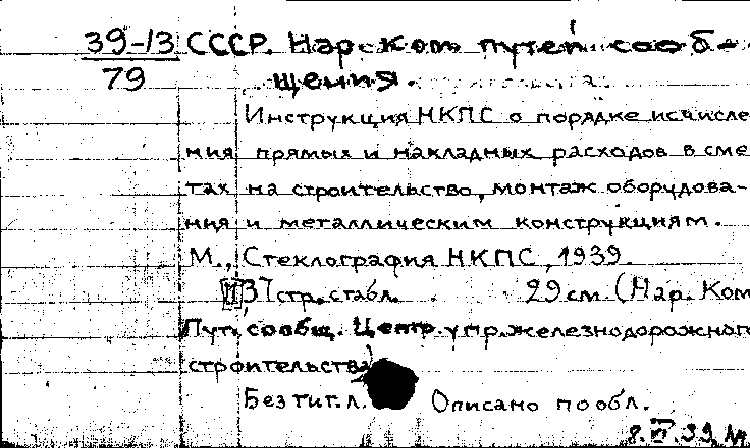 39-13 СССР. Нар. Ком. путей сооб-
79 щения.
Инструкция НКПС о порядке исчисле
ния прямых и накладных расходов в сме
тах на строительство, монтаж оборудова-
ния и металлическим конструкциям.
М., Стеклография НКПС, 1939.
[II], 37 стр. с табл. 29 см. (Нар. Ком
Пут. сообщ. Центр. упр. железнодорожног
строительства
Без тит. л. Описано по обл.